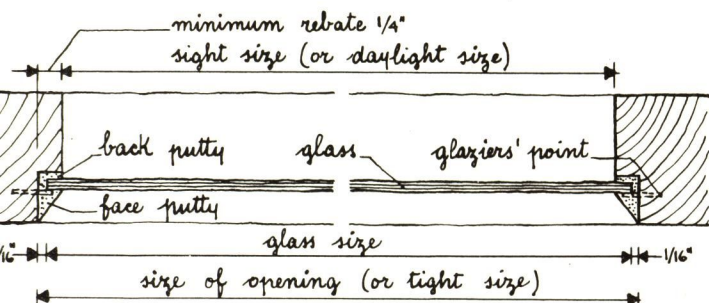 minimum rebate 1/4"
sight size (or daylight size)
back putty
glass
glaziers' point
face putty
/16"
glass size
1/16"
size of opening (or tight size)